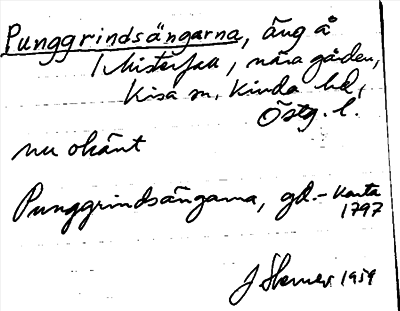 Punggrindsängarna, äng å
1 Misterfall, nära gården,
Kisa sn, Kinda hd,
Östg. l.
nu okänt
Punggrindsängarna, gd. – Karta
1797
J 1959